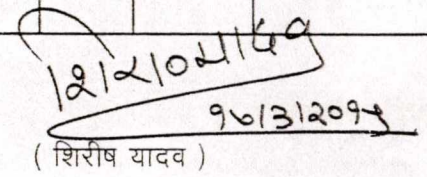 १७/३/२०१५
( शिरीष यादव )